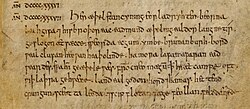 dccccxxxvi
dccccxxxvii Her æþelstan cyning eorla dryhten beorna
beahgifa 7 his broþor eac eadmund æþeling ealdorlangne tir
geslogon æt sæcce sweorda ecgum ymbe brunanburh bord
weal clufan heowan heaþolinde hamora lafan afaran ead
weardes swa him geæþele wæs from cneomægum þ hi æt campe
oft wiþ laþra gehwæne land ealgodon hord 7 hamas hettend
crungun sceotta leoda 7 scipflotan fæge feollan